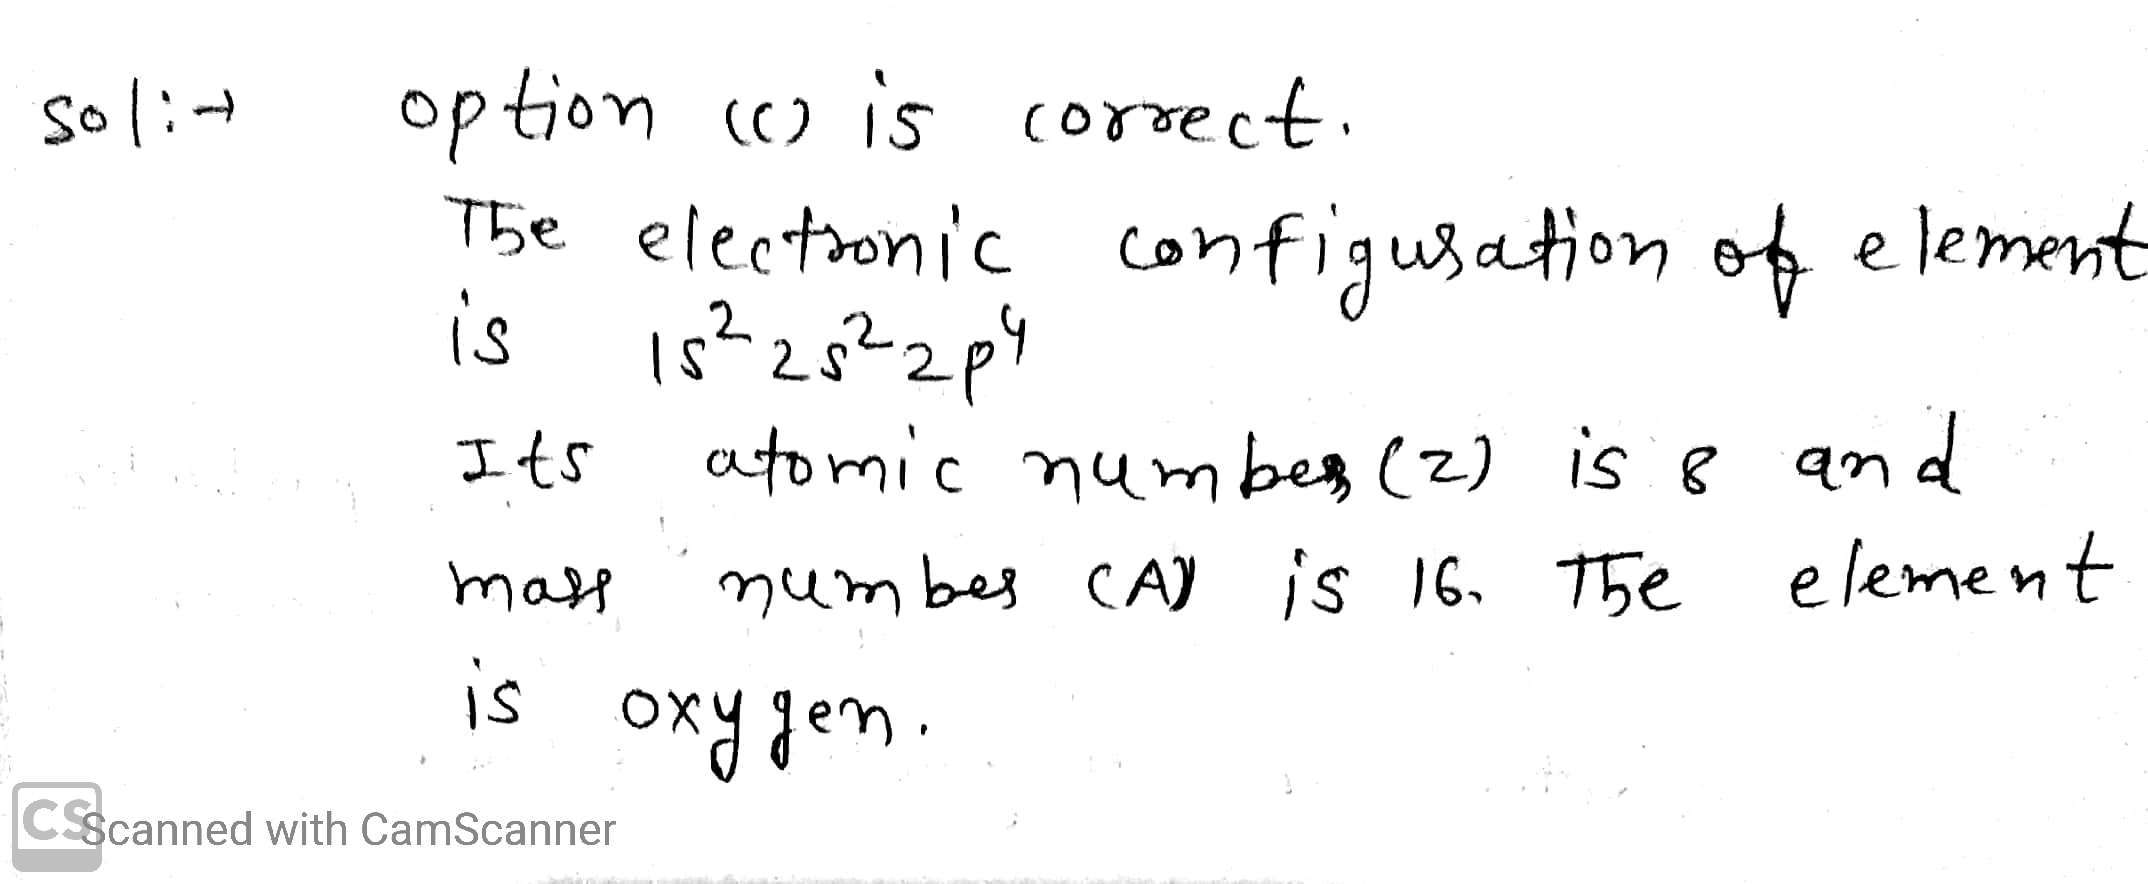 sol:→ option (c) is correct.
The electronic configuration of element
is 1s² 2s² 2p⁴
Its atomic number (z) is 8 and
mass number (A) is 16. The element
is oxygen.
CS Scanned with CamScanner